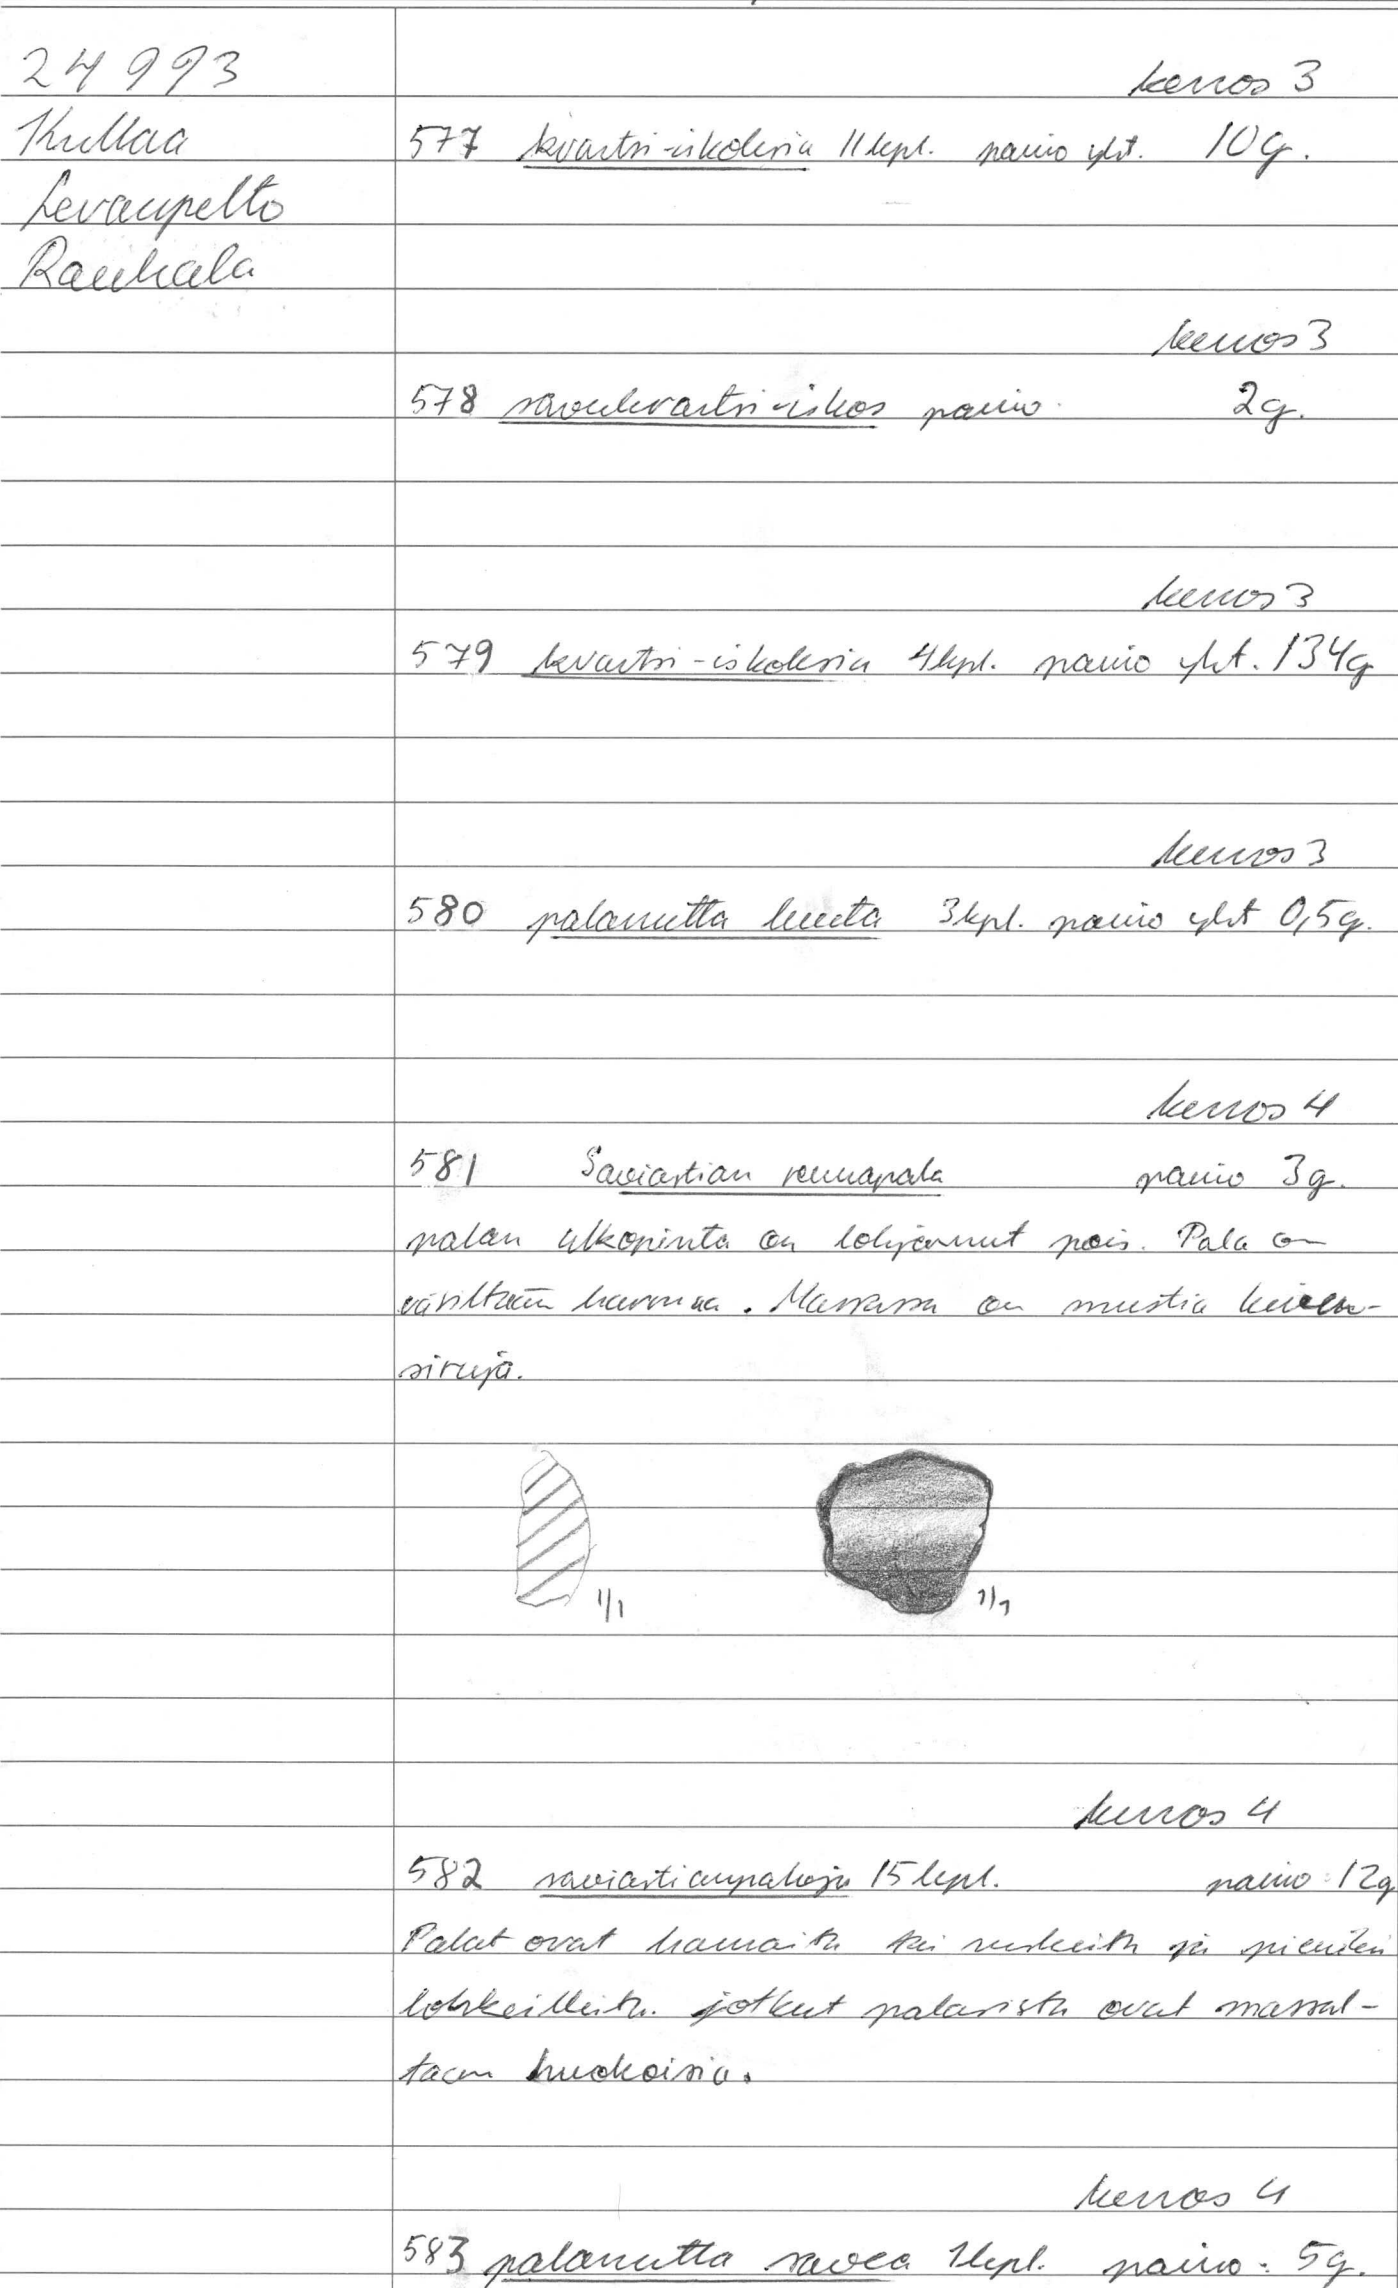 24993
Kullaa
Levanpelto
Rauhala
kerros 3
577 kvartsi-iskoksia 11 kpl. paino yht. 10g.
kerros 3
578 savukvartsi-iskos paino 2g.
kerros 3
579 kvartsi-iskoksia 4 kpl. paino yht. 134g
kerros 3
580 palanutta luuta 3 kpl. paino yht 0,5g.
kerros 4
581 Saviastian reunapala paino 3g.
palan ulkopinta on lohjennut pois. Pala on
väriltään harmaa. Massassa on mustia kiven-
siruja.
1/1 1/1
kerros 4
582 saviastianpaloja 15 kpl. paino: 12g
Palat ovat harmaita tai ruskeita ja pieniksi
lohkeilleita. jotkut palasista ovat massal-
taan huokoisia.
kerros 4
583 palanutta savea 1 kpl. paino: 5g.